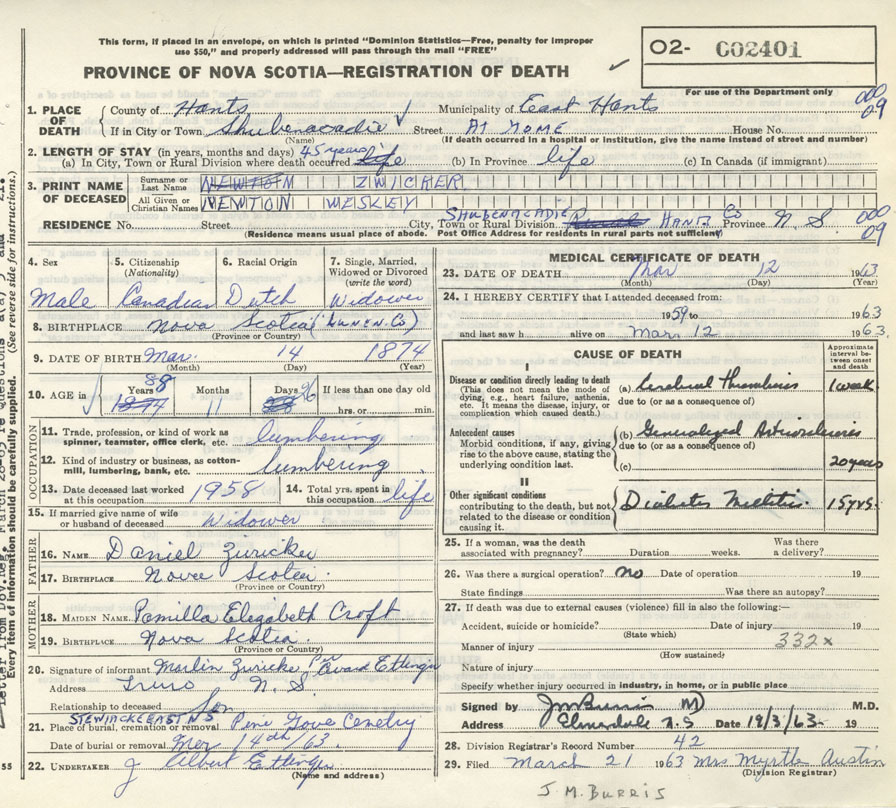 This form, if placed in an envelope, on which is printed "Dominion Statistics—Free, penalty for improper
use $50," and properly addressed will pass through the mail "FREE"
O2- C02401
PROVINCE OF NOVA SCOTIA—REGISTRATION OF DEATH
For use of the Department only
1. PLACE OF DEATH
County of Hants Municipality of East Hants
If in City or Town Shubenacadie Street At Home House No.
(Name) (If death occurred in a hospital or institution, give the name instead of street and number)
000
09
2. LENGTH OF STAY (in years, months and days)
(a) In City, Town or Rural Division where death occurred 45 years life (b) In Province life (c) In Canada (if immigrant)
3. PRINT NAME OF DECEASED
Surname or Last Name NEWTON ZWICKER
All Given or Christian Names NEWTON WESLEY
RESIDENCE No. Street City, Town or Rural Division SHUBENACADIE HANTS Co Province N. S
(Residence means usual place of abode. Post Office Address for residents in rural parts not sufficient)
000
09
4. Sex Male
5. Citizenship (Nationality) Canadian
6. Racial Origin Dutch
7. Single, Married, Widowed or Divorced (write the word) Widower
8. BIRTHPLACE Nova Scotia (Lunen. Co)
(Province or Country)
9. DATE OF BIRTH Mar. 14 1874
(Month) (Day) (Year)
10. AGE in Years 88 1874 Months 11 Days 26 If less than one day old
hrs. or min.
OCCUPATION
11. Trade, profession, or kind of work as spinner, teamster, office clerk, etc. lumbering
12. Kind of industry or business, as cotton-mill, lumbering, bank, etc. lumbering
13. Date deceased last worked at this occupation 1958
14. Total yrs. spent in this occupation life
15. If married give name of wife or husband of deceased Widower
FATHER
16. NAME Daniel Zwicker
17. BIRTHPLACE Nova Scotia
(Province or Country)
MOTHER
18. MAIDEN NAME Pamilla Elizabeth Croft
19. BIRTHPLACE Nova Scotia
(Province or Country)
20. Signature of informant Marlin Zwicker Per Ettinger
Address Truro N. S
Relationship to deceased Son
STEWIACKE EAST N S
21. Place of burial, cremation or removal Pine Grove Cemetry
Date of burial or removal Mar 14th/63.
22. UNDERTAKER J Albert Ettinger
(Name and address)
MEDICAL CERTIFICATE OF DEATH
23. DATE OF DEATH Mar 12 1963
(Month) (Day) (Year)
24. I HEREBY CERTIFY that I attended deceased from:
1959 to 1963
and last saw h alive on Mar. 12 1963.
CAUSE OF DEATH
Approximate interval between onset and death
I
Disease or condition directly leading to death
(This does not mean the mode of dying, e.g., heart failure, asthenia, etc. It means the disease, injury, or complication which caused death.)
(a) Cerebral Thrombosis 1 week
due to (or as a consequence of)
Antecedent causes
Morbid conditions, if any, giving rise to the above cause, stating the underlying condition last.
(b) Generalized Arteriosclerosis
due to (or as a consequence of)
(c) 20 years
II
Other significant conditions
contributing to the death, but not related to the disease or condition causing it.
Diabetes Mellitis 15 yrs.
25. If a woman, was the death associated with pregnancy? Duration weeks. Was there a delivery?
26. Was there a surgical operation? no Date of operation 19
State findings Was there an autopsy?
27. If death was due to external causes (violence) fill in also the following:—
Accident, suicide or homicide? Date of injury 19
(State which)
Manner of injury 332x
(How sustained)
Nature of injury
Specify whether injury occurred in industry, in home, or in public place
Signed by J M Burris MD M.D.
Address Elmsdale N.S Date 18/3/63. 19
28. Division Registrar's Record Number 42
29. Filed March 21 1963 Mrs Myrtle Austin
(Division Registrar)
J. M. BURRIS
Every item of information should be carefully supplied. (See reverse side for instructions.)
55